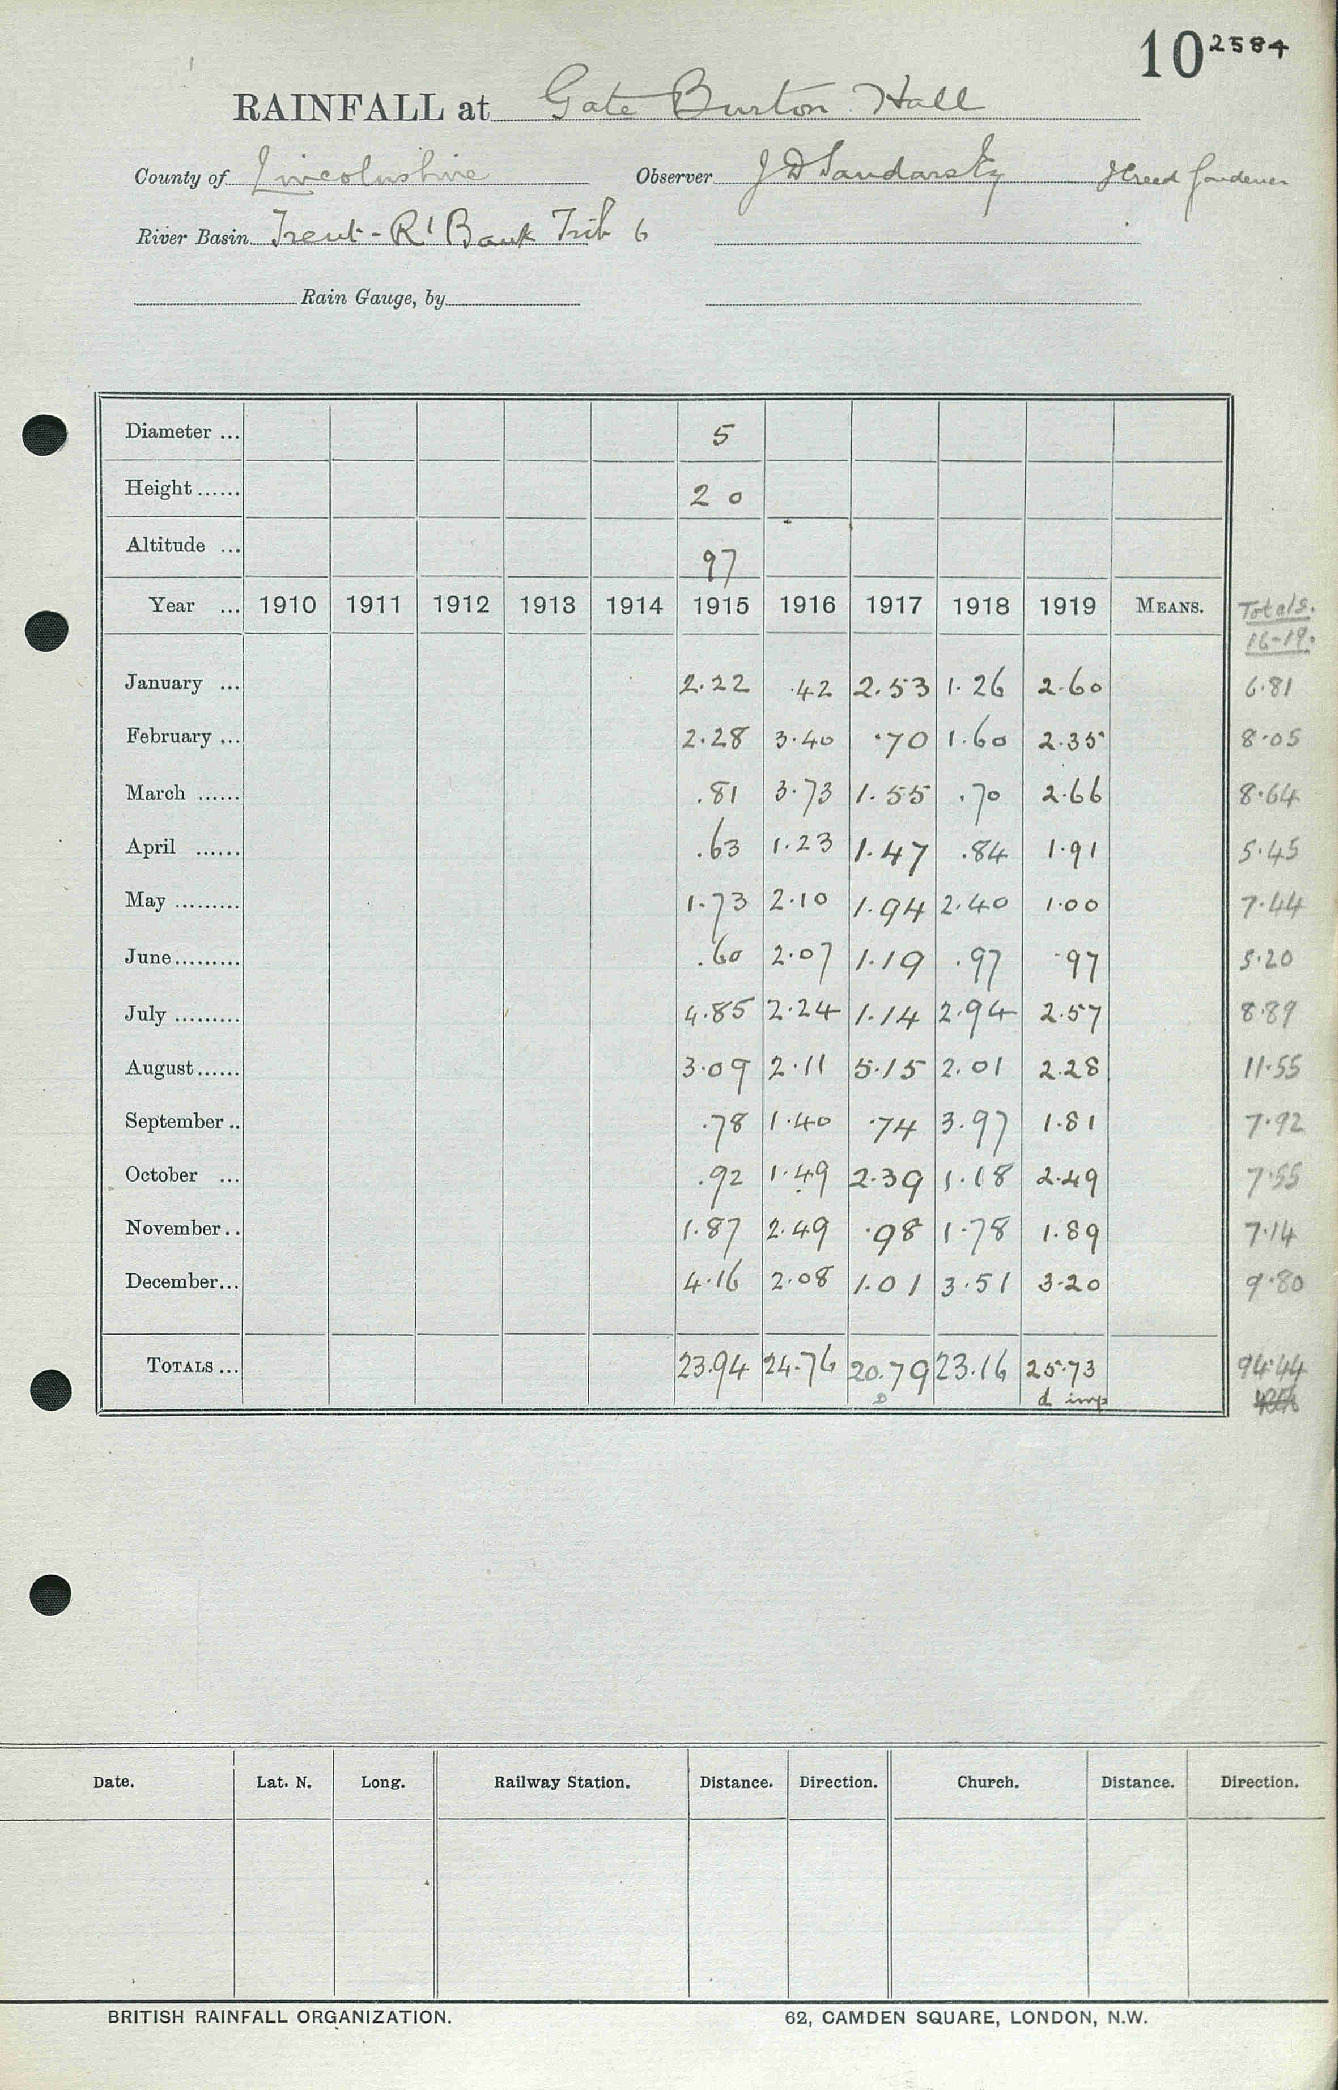 10 2584
RAINFALL at Gate Burton Hall
County of Lincolnshire Observer J D Sandars Esq J Creed Gardener
River Basin Trent - Rt Bank Trib 6
Rain Gauge, by
Diameter ... 5
Height ...... 2 0
Altitude ... 97
Year ... 1910 1911 1912 1913 1914 1915 1916 1917 1918 1919 MEANS. Totals.
16-19.
January ... 2.22 .42 2.53 1.26 2.60 6.81
February ... 2.28 3.40 .70 1.60 2.35 8.05
March ...... .81 3.73 1.55 .70 2.66 8.64
April ...... .63 1.23 1.47 .84 1.91 5.45
May ......... 1.73 2.10 1.94 2.40 1.00 7.44
June ......... .60 2.07 1.19 .97 .97 5.20
July ......... 4.85 2.24 1.14 2.94 2.57 8.89
August ...... 3.09 2.11 5.15 2.01 2.28 11.55
September .. .78 1.40 .74 3.97 1.81 7.92
October ... .92 1.49 2.39 1.18 2.49 7.55
November .. 1.87 2.49 .98 1.78 1.89 7.14
December ... 4.16 2.08 1.01 3.51 3.20 9.80
TOTALS ... 23.94 24.76 20.79 23.16 25.73 94.44
D d imp
Date. Lat. N. Long. Railway Station. Distance. Direction. Church. Distance. Direction.
BRITISH RAINFALL ORGANIZATION. 62, CAMDEN SQUARE, LONDON, N.W.